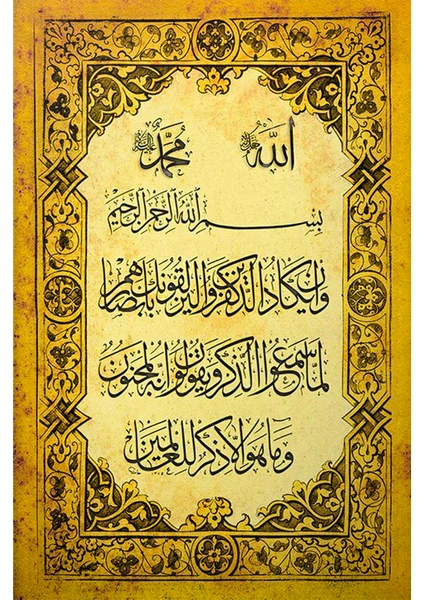 الله جل جلاله محمد ﷺ
بِسْمِ اللهِ الرَّحْمٰنِ الرَّحِيمِ
وَإِنْ يَكَادُ الَّذِينَ كَفَرُوا لَيُزْلِقُونَكَ بِأَبْصَارِهِمْ
لَمَّا سَمِعُوا الذِّكْرَ وَيَقُولُونَ إِنَّهُ لَمَجْنُونٌ
وَمَا هُوَ إِلَّا ذِكْرٌ لِلْعَالَمِينَ